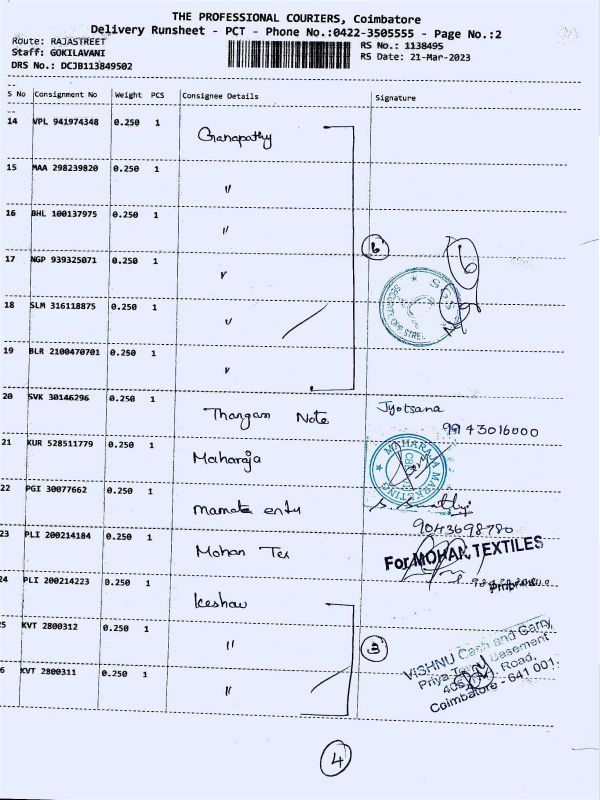 THE PROFESSIONAL COURIERS, Coimbatore
Delivery Runsheet - PCT - Phone No.:0422-3505555 - Page No.:2
Route: RAJASTREET
Staff: GOKILAVANI
DRS No.: DCJB113849502
RS No.: 1138495
RS Date: 21-Mar-2023
S No Consignment No Weight PCS Consignee Details Signature
14 VPL 941974348 0.250 1 Ganapathy
15 MAA 298239820 0.250 1 "
16 BHL 100137975 0.250 1 "
17 NGP 939325071 0.250 1 " 6 6
S.G.S
18 SLM 316118875 0.250 1 "
19 BLR 2100470701 0.250 1 "
20 SVK 30146296 0.250 1 Thangam Note Jyotsana
9943016000
21 KUR 528511779 0.250 1 Maharaja
MAHARAJA MARKETING
CBE
22 PGI 30077662 0.250 1 Mamata
9043698780
23 PLI 200214184 0.250 1 Mohan Tex
For MOHAN TEXTILES
24 PLI 200214223 0.250 1 Keshav
5 KVT 2800312 0.250 1 " 3
6 KVT 2800311 0.250 1 "
VISHNU Cash and Carry,
Priya Basement
Road,
Coimbatore - 641 001.
4